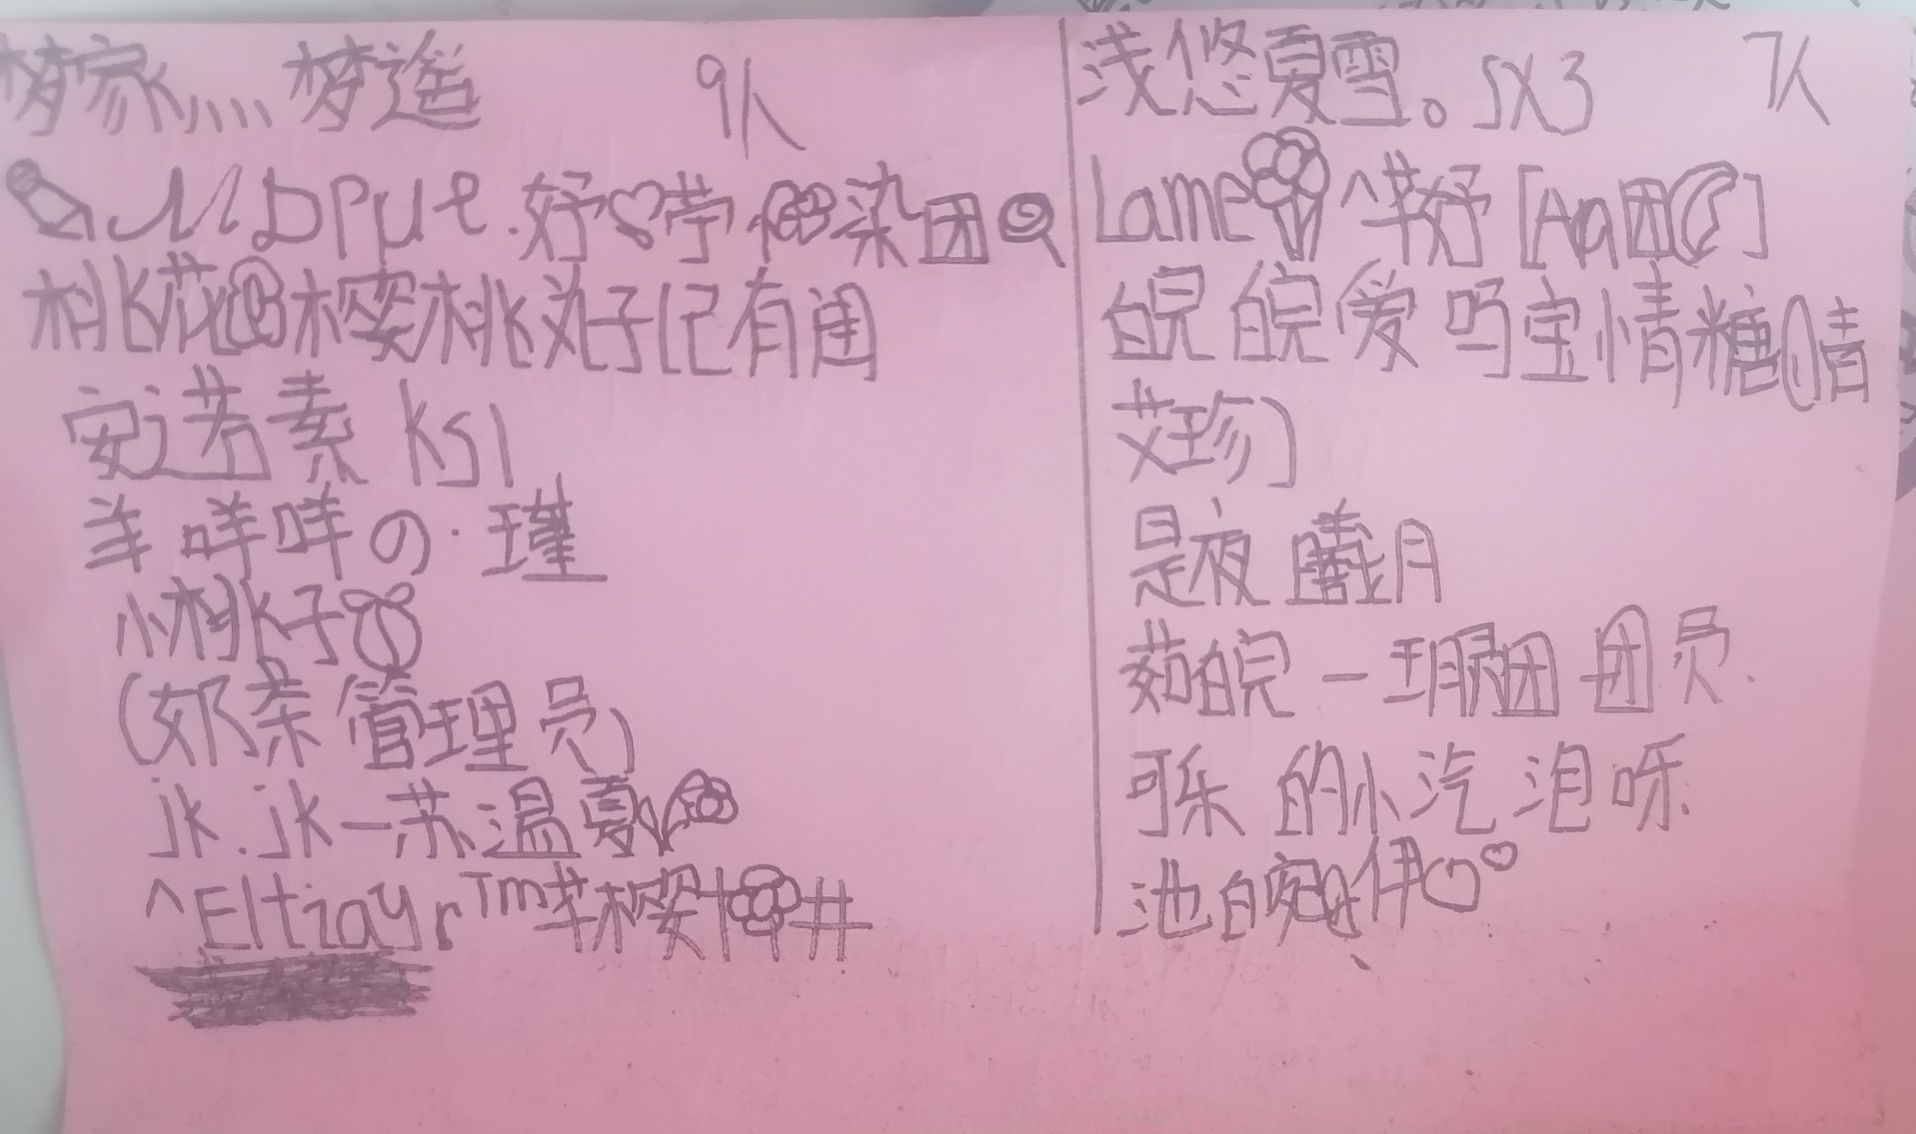 梦家灬 梦遥 9人
MDpμe.好 苧 染团
桃花 樱桃丸子记有
安诺素 KSl
羊咩咩の·瑾
小桃子
(奶茶管理员)
jk.jk一苏温夏
^Eltiayr™ 樱
浅悠夏雪。SX3 7人
Lame ^ 好[Aa团]
皖爱吗宝情糖
艾珍]
是夜曦月
茹皖一玥 团 团员.
可乐的小汽泡呀.
池 伊